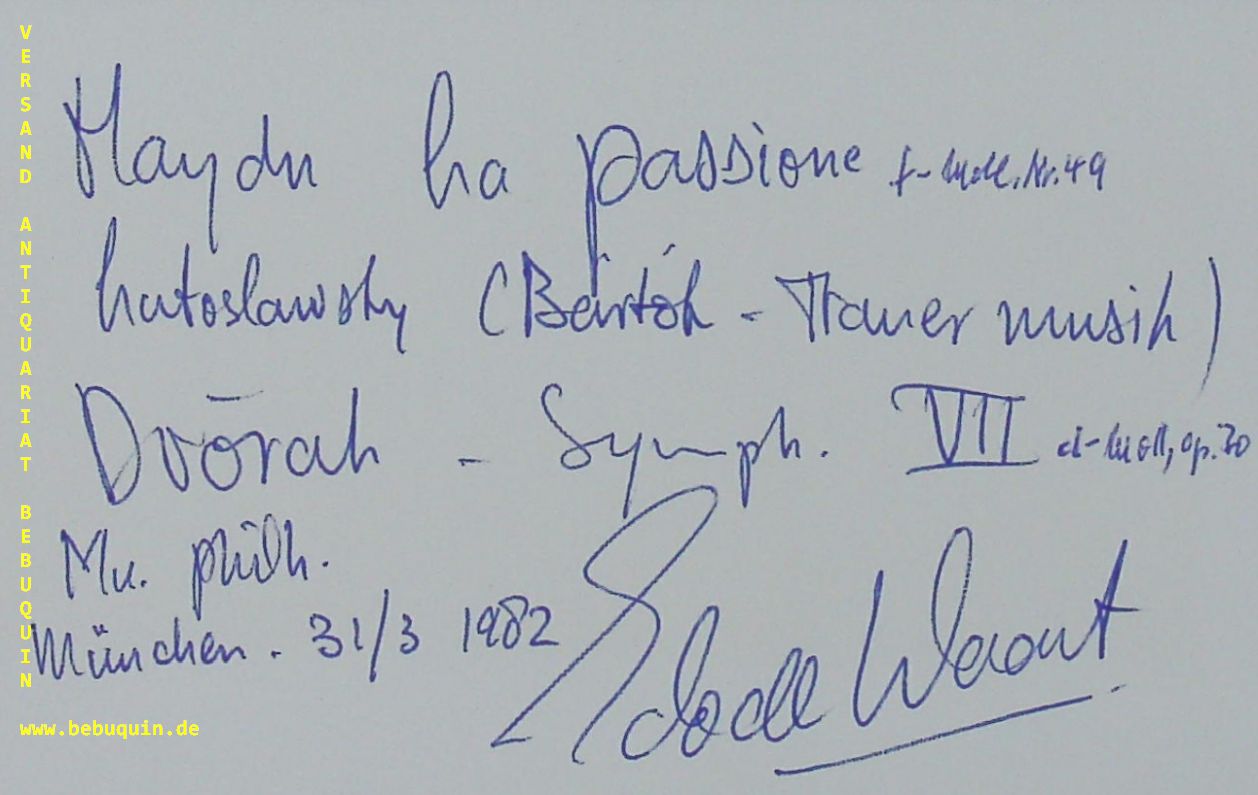 Haydn La passione f-moll, Nr. 49
Lutoslawsky (Bártók - Trauermusik)
Dvōrak - Symph. VII d-moll, op. 70
Mü. philh.
München. 31/3 1982
Edo de Waart
VERSAND ANTIQUARIAT BEBUQUIN
www.bebuquin.de